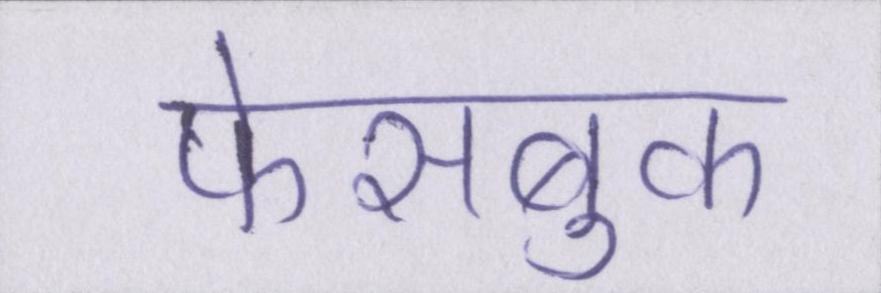 फेसबुक